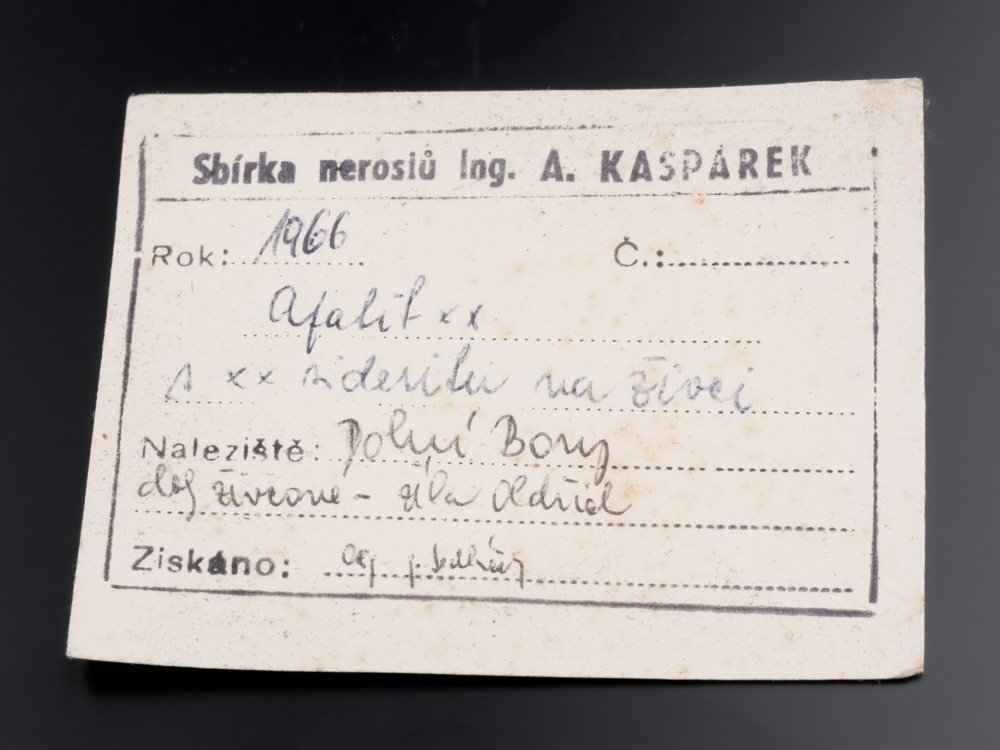 Sbírka nerostů Ing. A. KASPAREK
Rok: 1966 Č.:
Apatit xx
s xx sideritu na živci
Naleziště: Dolní Bory
důl živcové - žíla Oldřich
Získáno: